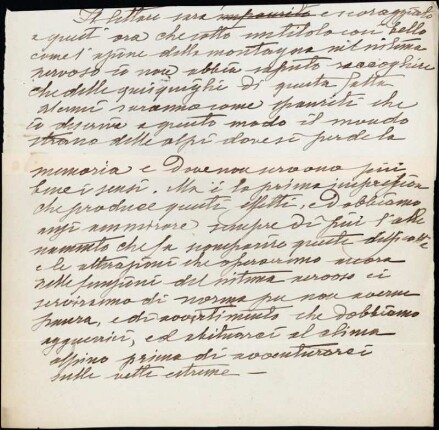 Il lettore sarà impaurito e scoraggiato
a quest'ora che sotto un titolo così bello
come l'azione della montagna nel sistema
nervoso io non abbia saputo raccogliere
che delle quisquiglie di questa fatta
alcuni saranno come spauriti che
io descriva a questo modo il mondo
strano delle alpi dove si perde la
memoria e dove non servono più
bene i sensi. Ma è la prima impressione
che produce questi effetti, e dobbiamo
anzi ammirare sempre di più l'alle-
namento che fa scomparire queste
e le alterazioni che osserveremo ancora
nelle funzioni del sistema nervoso ci
serviranno di norma per non averne
paura, e di avvertimento che dobbiamo
agguerrirci, ed abituarci al clima
alpino prima di avventurarci
sulle vette estreme —